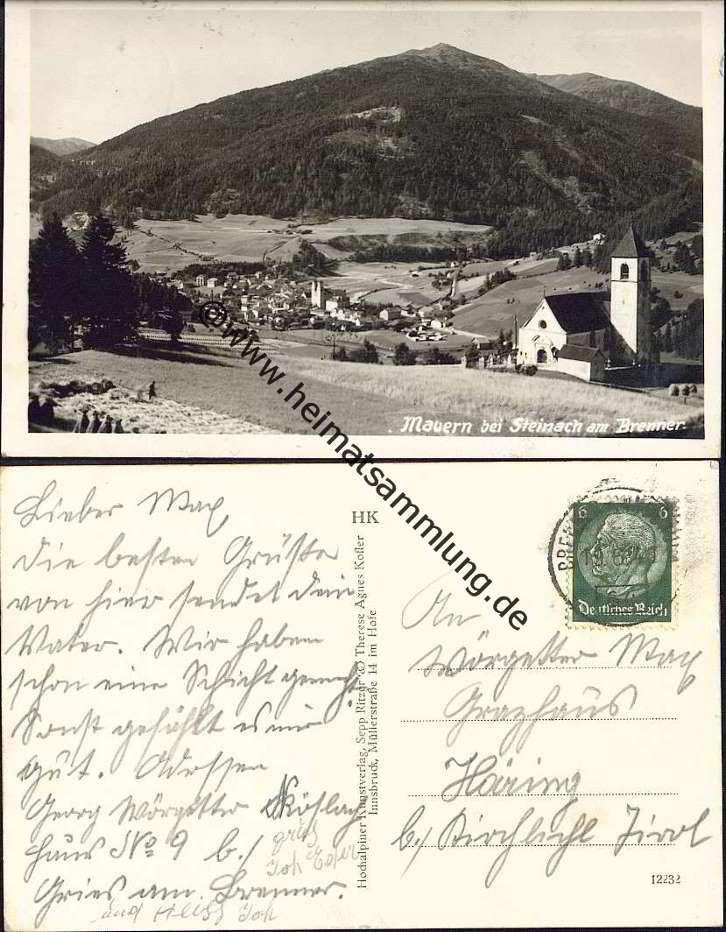 Mauern bei Steinach am Brenner.
©www.heimatsammlung.de
Lieber Max,
die besten Grüße
von hier sendet dein
Vater. Wir haben
schon eine Schicht gemacht.
Sonst gefählt es mir
gut. Adresse
Georg Wörgetter
Haus No 9 b./
Gries am Brenner.
und
HK
Hochalpiner Kunstverlag, Sepp Ritzer & Therese Agnes Kofler
Innsbruck, Müllerstraße 14 im Hofe
6 6
Deutsches Reich
An
Wörgetter Max
Grazhaus
Häring
b./ Kirchbichl Tirol
12232